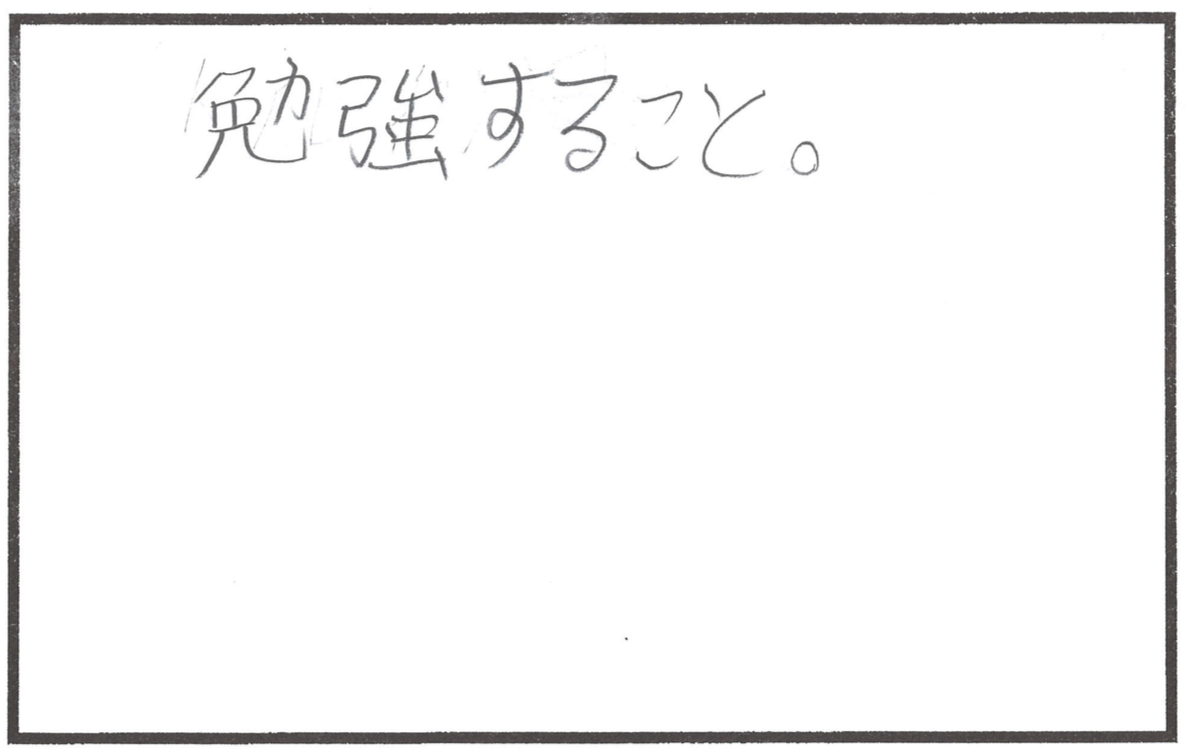 勉強すること。